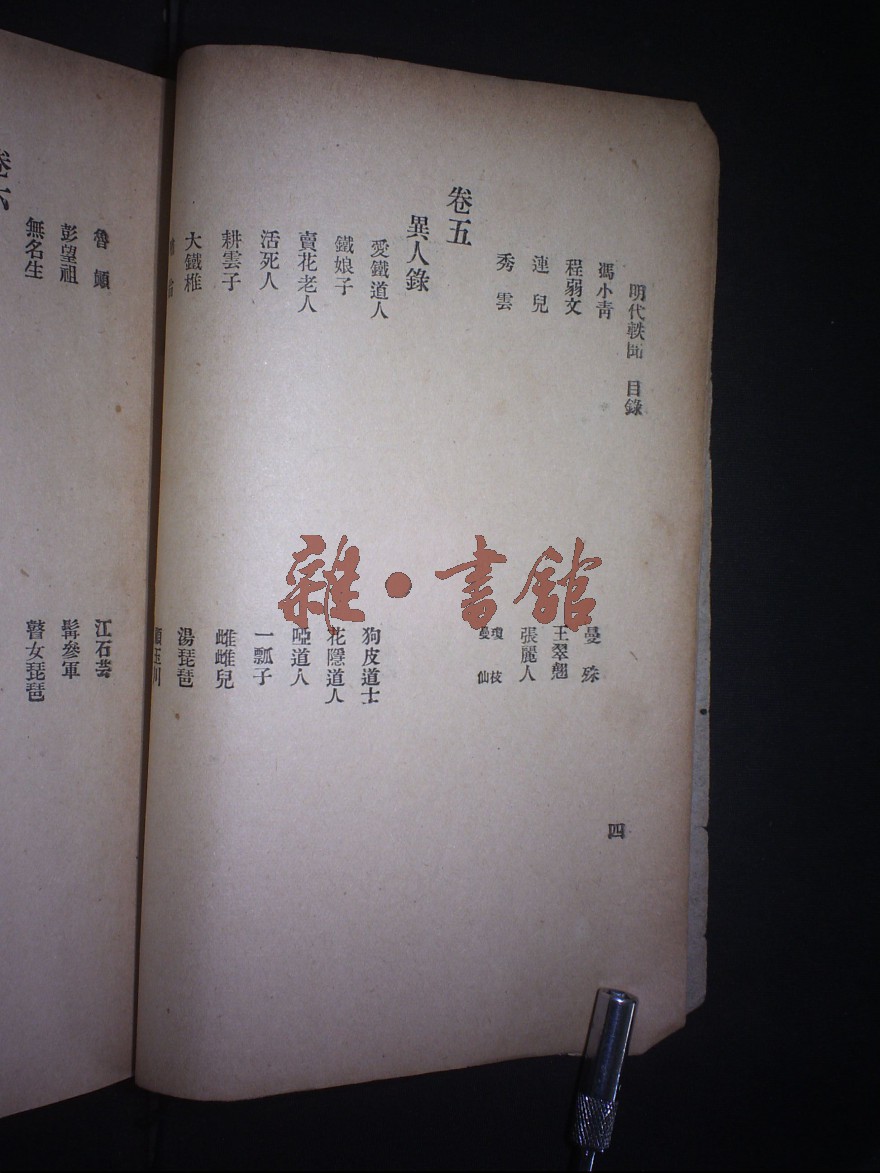 明代軼聞 目錄
四
馮小青
曼殊
程弱文
王翠翹
連兒
張麗人
秀雲
瓊枝
曼仙
卷五
異人錄
愛鐵道人
狗皮道士
鐵娘子
花隱道人
賣花老人
啞道人
活死人
一瓢子
耕雲子
雌雌兒
大鐵椎
湯琵琶
顧玉川
魯顛
江石芸
彭望祖
髯參軍
無名生
瞽女琵琶
卷六
雜·書館